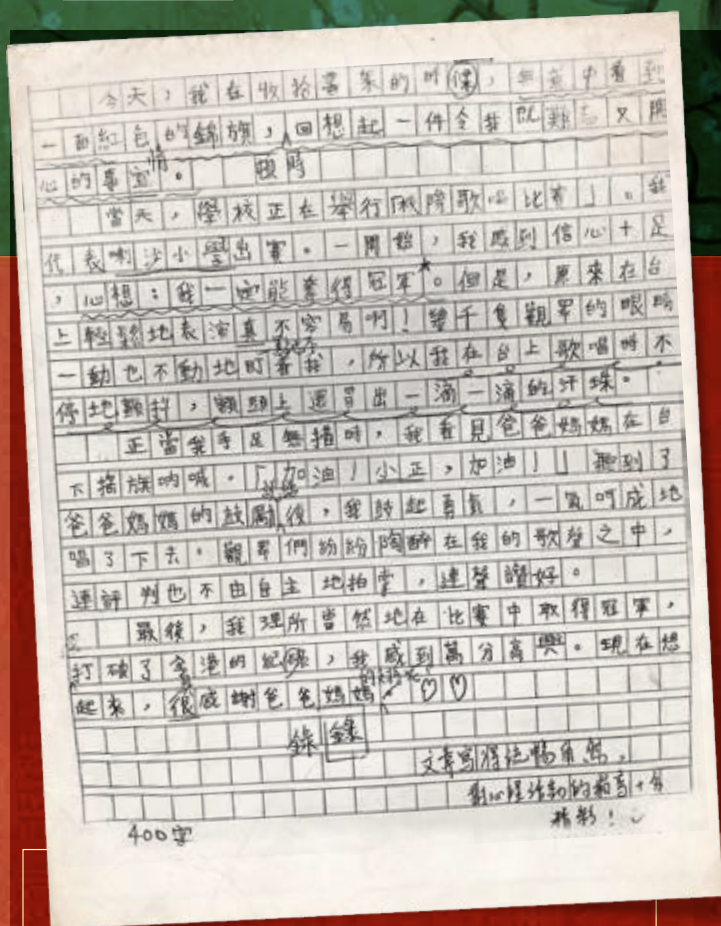 今天，我在收拾書架的時候，無意中看到
一面紅色的錦旗，頓時回想起一件令我既難忘又開
心的事情。
當天，學校正在舉行「校際歌唱比賽」。我
代表喇沙小學出賽。一開始，我感到信心十足
，心想：我一定能奪得冠軍。但是，原來在台
上輕鬆地表演真不容易啊！幾千隻觀眾的眼睛
一動也不動地盯着我，所以我在台上歌唱時不
停地顫抖，額頭上還冒出一滴一滴的汗珠。
正當我手足無措時，我看見爸爸媽媽在台
下搖旗吶喊。「加油！小正，加油！」聽到了
爸爸媽媽的鼓勵後，我鼓起勇氣，一氣呵成地
唱了下去。觀眾們紛紛陶醉在我的歌聲之中，
連評判也不由自主地拍掌，連聲讚好。
最後，我理所當然地在比賽中取得冠軍，
打破了全港的紀錄，我感到萬分高興。現在想
起來，很感謝爸爸媽媽
錄 錄
文章寫得流暢自然，
對心理活動的描寫十分
精彩！
400字